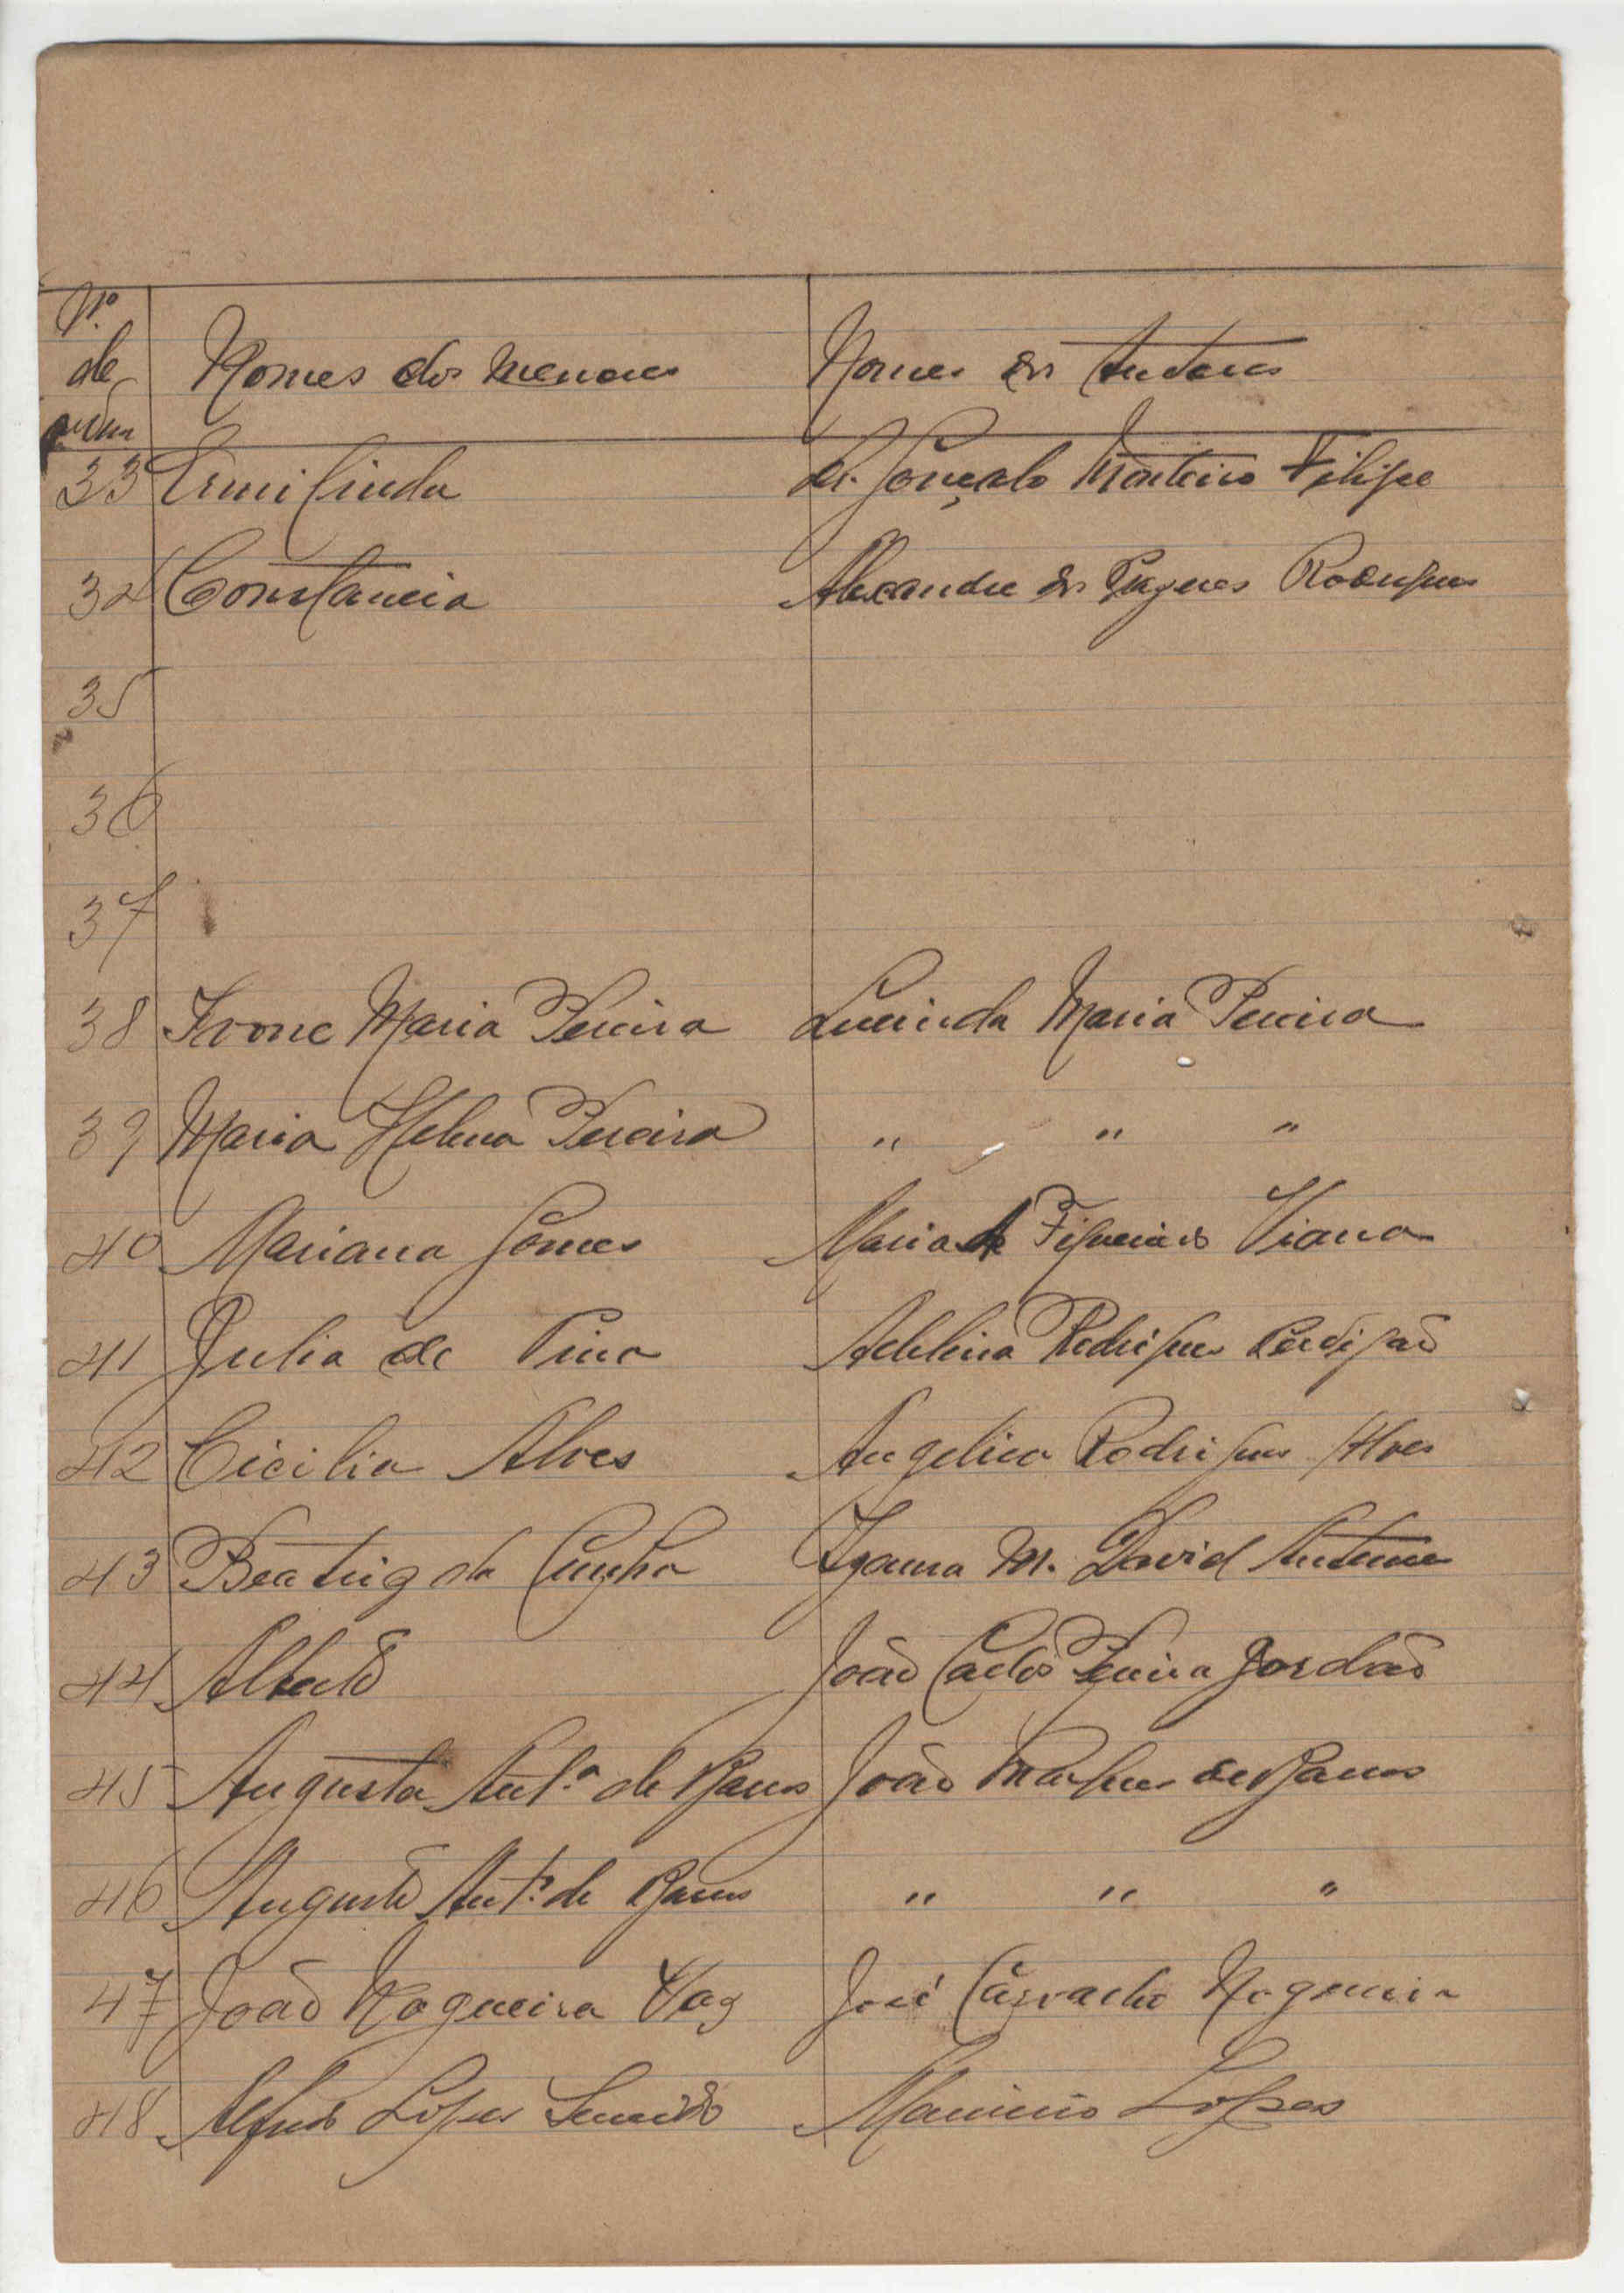 Nº
de
ordem
Nomes dos Menores Nomes dos Tutores
33 Ermilinda Dr. Gonçalo Monteiro Filipe
34 Constancia Alexandre dos Rodrigues
35
36
37
38 Ivone Maria Pereira Lucinda Maria Pereira
39 Maria Helena Pereira " " "
40 Mariana Gomes Maria de Figueiredo Viana
41 Julia de Pina Adelina Rodrigues Perdigão
42 Cicilia Alves Angelica Rodrigues Alves
43 Beatriz da Cunha Izaura M. David Antunes
44 Alberto João Carlos Pereira Jordão
45 Augusta Antª de Barros João Marques de Barros
46 Augusto Antº de Barros " " "
47 João Nogueira Vaz José Carvalho Nogueira
48 Alfredo Lopes Mauricio Lopes